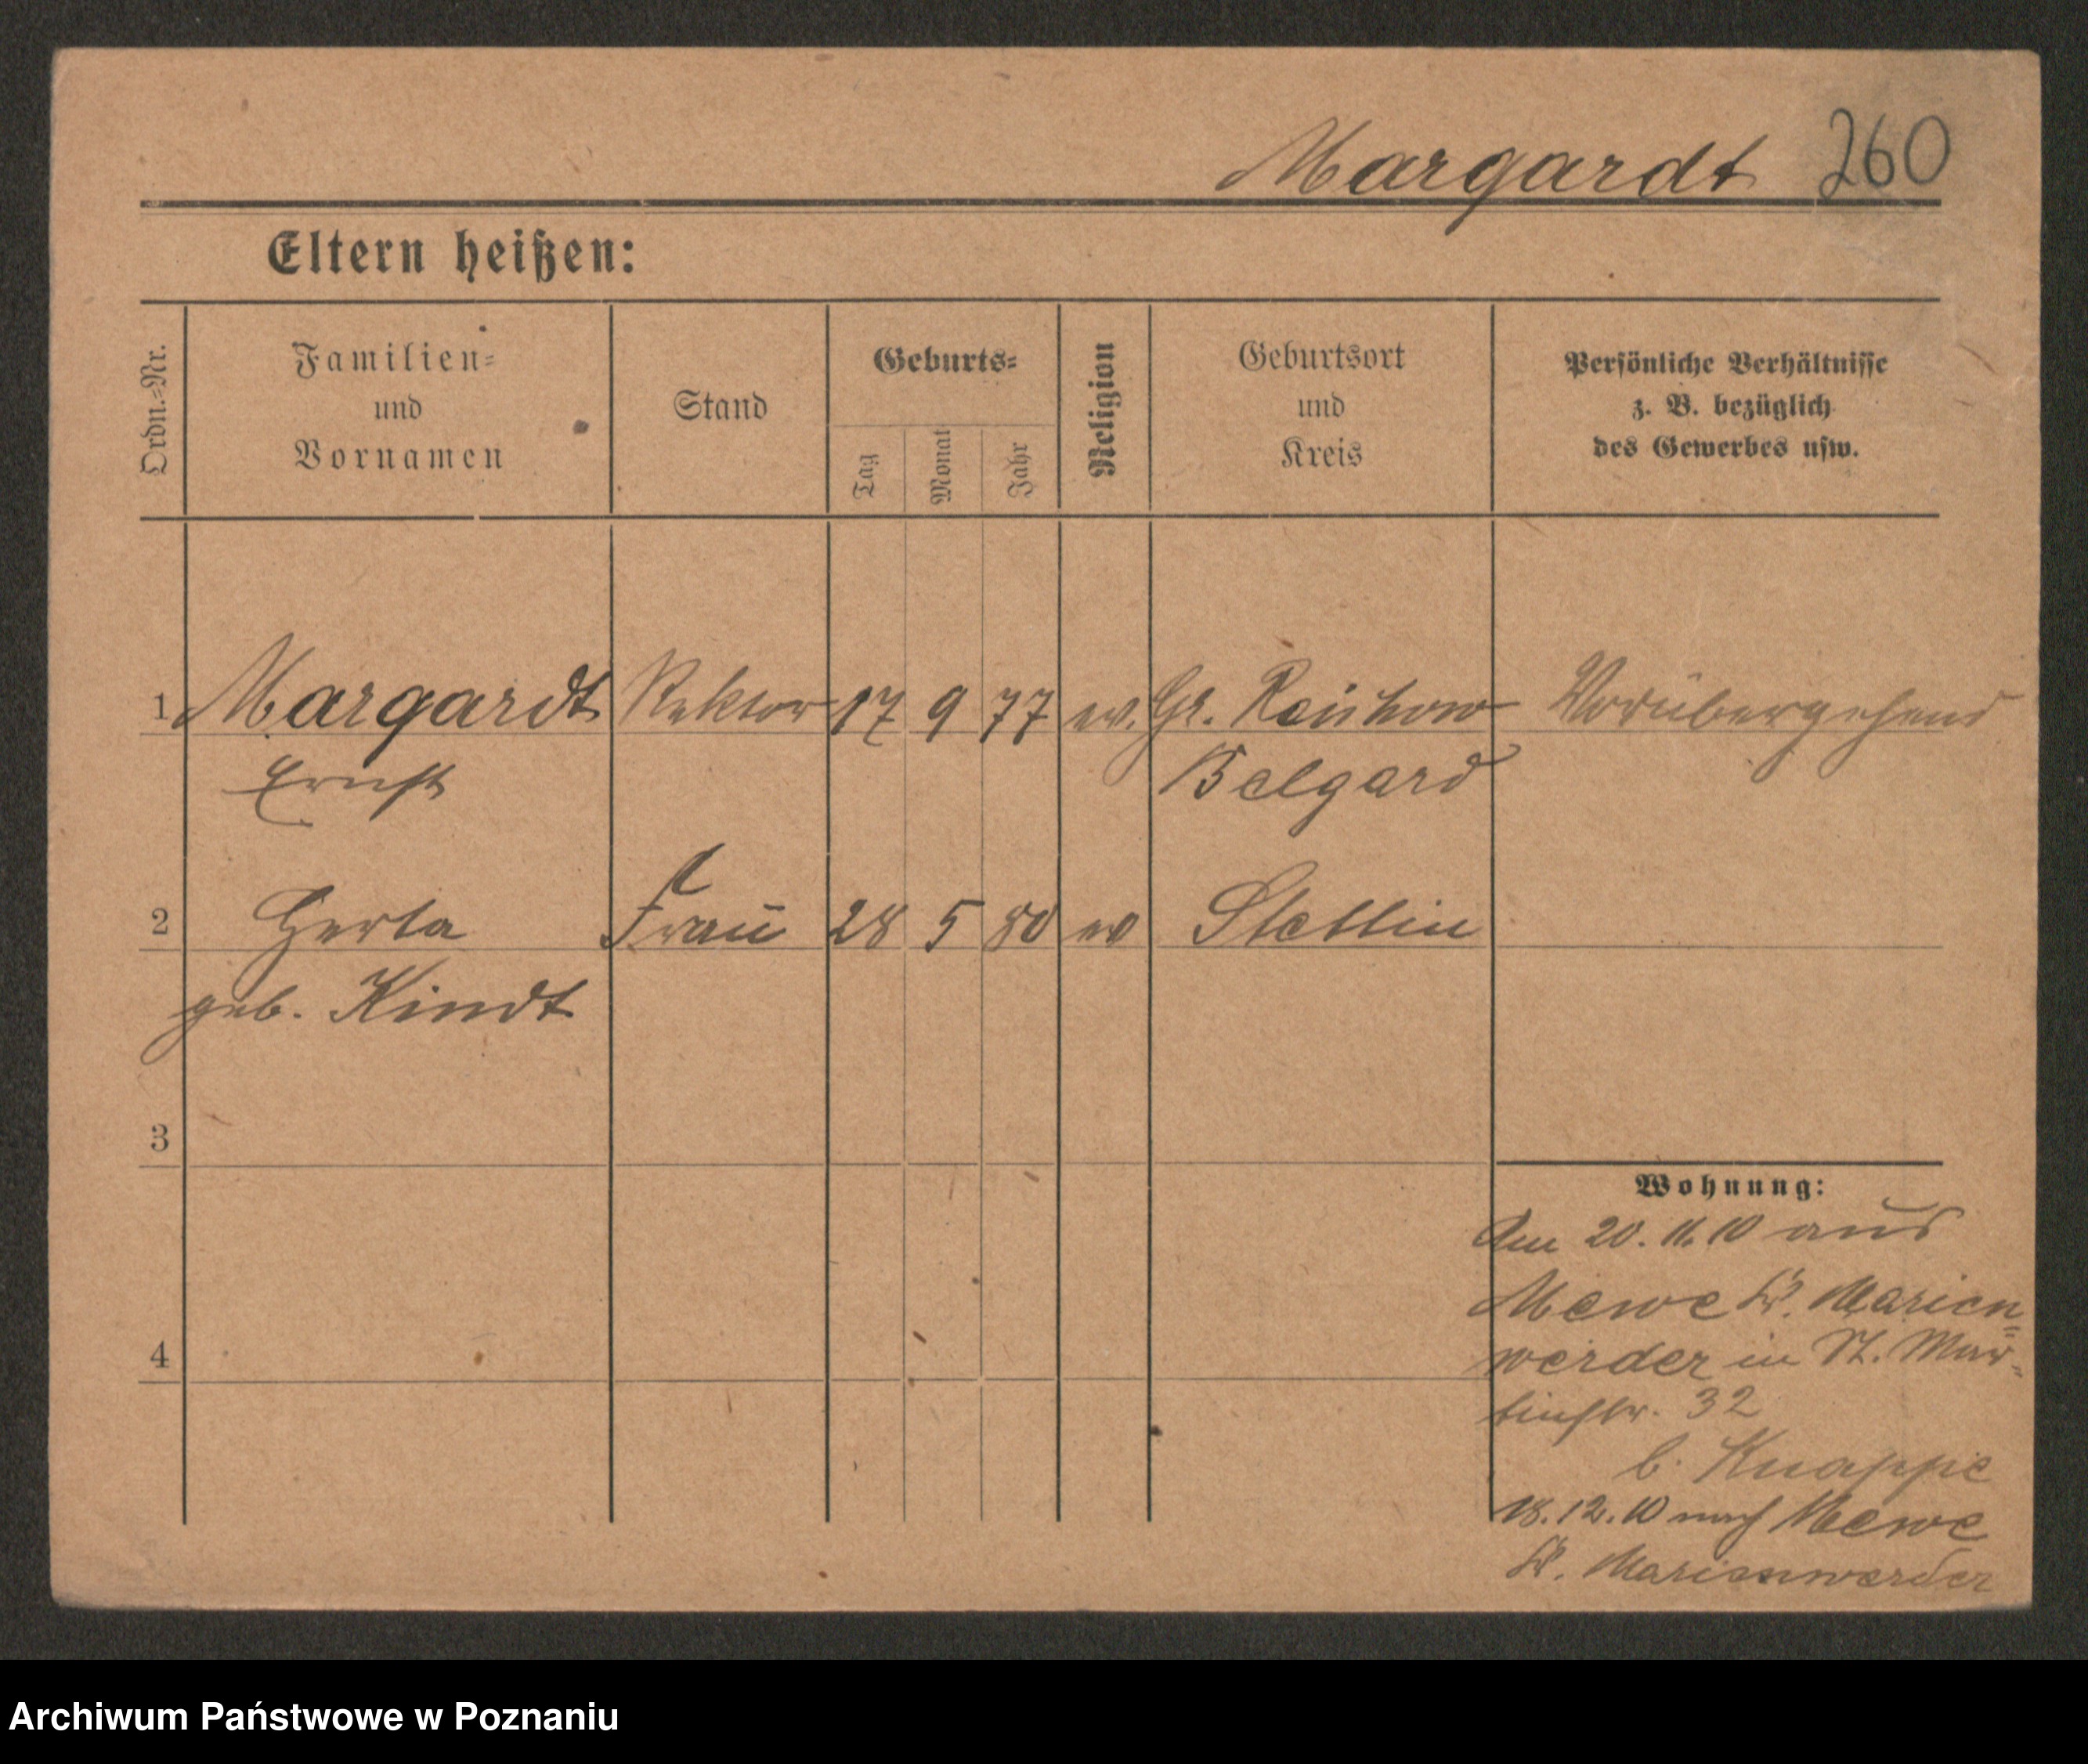 Margardt 260
Eltern heißen:
Ordn.=Nr.
Familien=
und
Vornamen
Stand
Geburts=
Tag
Monat
Jahr
Religion
Geburtsort
und
Kreis
Persönliche Verhältnisse
z. B. bezüglich
des Gewerbes usw.
1 Margardt Rektor 17 9 77 ev. Gr. Reichow Vorübergehend
Ernst Belgard
2 Herta Frau 28 5 80 ev Stettin
geb. Kindt
3
Wohnung:
Am 20. 11. 10 aus
Mewe Kr. Marien=
werder in St. Mar-
4
tinstr. 32
b. Knappe
18. 12. 10 nach Mewe
Kr. Marienwerder
Archiwum Państwowe w Poznaniu